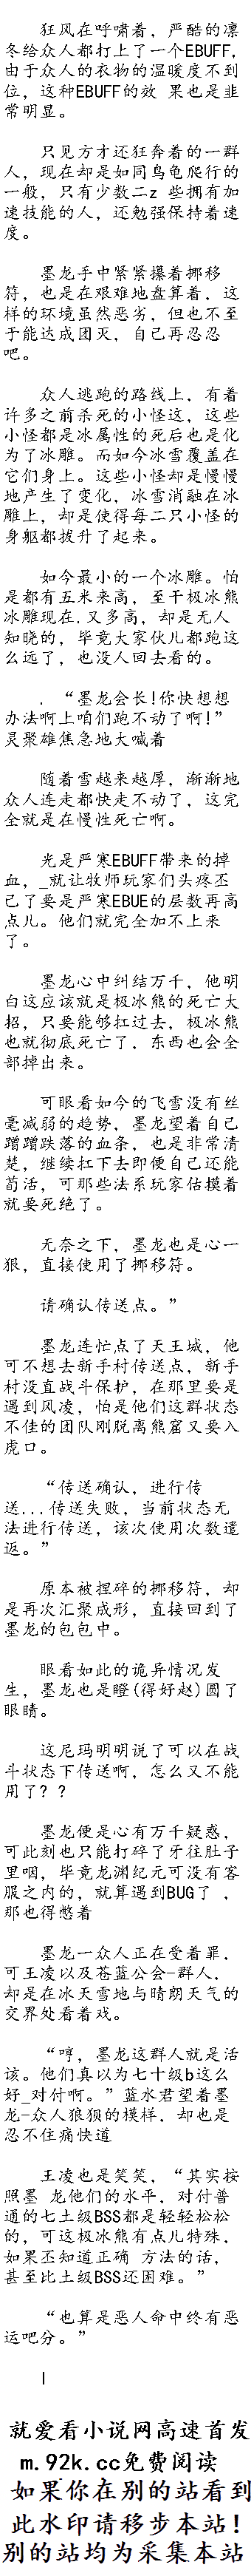 狂风在呼啸着，严酷的凛
冬给众人都打上了一个EBUFF,
由于众人的衣物的温暖度不到
位，这种EBUFF的效 果也是非
常明显。
只见方才还狂奔着的一群
人，现在却是如同乌龟爬行的
一般，只有少数二z 些拥有加
速技能的人，还勉强保持着速
度。
墨龙手中紧紧攥着挪移
符，也是在艰难地盘算着，这
样的环境虽然恶劣，但也不至
于能达成团灭，自己再忍忍
吧。
众人逃跑的路线上，有着
许多之前杀死的小怪这，这些
小怪都是冰属性的死后也是化
为了冰雕。而如今冰雪覆盖在
它们身上。这些小怪却是慢慢
地产生了变化，冰雪消融在冰
雕上，却是使得每二只小怪的
身躯都拔升了起来。
如今最小的一个冰雕。怕
是都有五米来高，至于极冰熊
冰雕现在.又多高，却是无人
知晓的，毕竟大家伙儿都跑这
么远了，也没人回去看的。
．“墨龙会长!你快想想
办法啊上咱们跑不动了啊!”
灵聚雄焦急地大喊着
随着雪越来越厚，渐渐地
众人连走都快走不动了，这完
全就是在慢性死亡啊。
光是严寒EBUFF带来的掉
血，_就让牧师玩家们头疼丕
己了要是严寒EBUE的层数再高
点儿。他们就完全加不上来
了。
墨龙心中纠结万千，他明
白这应该就是极冰熊的死亡大
招，只要能够扛过去，极冰熊
也就彻底死亡了，东西也会全
部掉出来。
可眼看如今的飞雪没有丝
毫减弱的趋势，墨龙望着自己
蹭蹭跌落的血条，也是非常清
楚，继续扛下去即便自己还能
苟活，可那些法系玩家估摸着
就要死绝了。
无奈之下，墨龙也是心一
狠，直接使用了挪移符。
请确认传送点。”
墨龙连忙点了天王城，他
可不想去新手村传送点，新手
村没直战斗保护，在那里要是
遇到风凌，怕是他们这群状态
不佳的团队刚脱离熊窟又要入
虎口。
“传送确认，进行传
送...传送失败，当前状态无
法进行传送，该次使用次数遣
返。”
原本被捏碎的挪移符，却
是再次汇聚成形，直接回到了
墨龙的包包中。
眼看如此的诡异情况发
生，墨龙也是瞪(得好赵)圆了
眼睛。
这尼玛明明说了可以在战
斗状态下传送啊，怎么又不能
用了？?
墨龙便是心有万千疑惑，
可此刻也只能打碎了牙往肚子
里咽，毕竟龙渊纪元可没有客
服之内的，就算遇到BUG了 ，
那也得憋着
墨龙一众人正在受着罪.
可王凌以及苍蓝公会-群人，
却是在冰天雪地与晴朗天气的
交界处看着戏。
“哼，墨龙这群人就是活
该。他们真以为七十级b这么
好_对付啊。”蓝水君望着墨
龙-众人狼狈的模样，却也是
忍不住痛快道
王凌也是笑笑，“其实按
照墨 龙他们的水平，对付普
通的七土级BSS都是轻轻松松
的，可这极冰熊有点儿特殊，
如果丕知道正确 方法的话，
甚至比土级BSS还困难。”
“也算是恶人命中终有恶
运吧分。”
|
就爱看小说网高速首发
m.92k.cc免费阅读
如果你在别的站看到
此水印请移步本站！
别的站均为采集本站